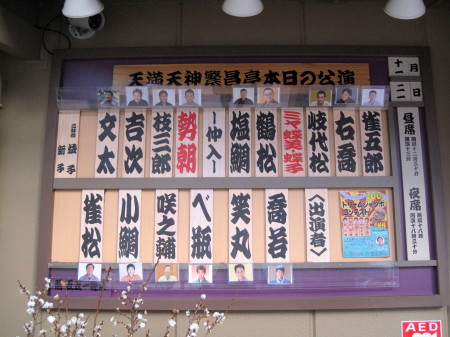 天満天神繁昌亭本日の公演
月
日
昼席
夜席
〈出演者〉
雀五郎
右喬
岐代松
ミヤ蝶美・蝶子
鶴松
塩鯛
～仲入～
勢朝
枝三郎
吉次
文太
喬若
笑丸
べ瓶
咲之輔
小鯛
雀松
AED